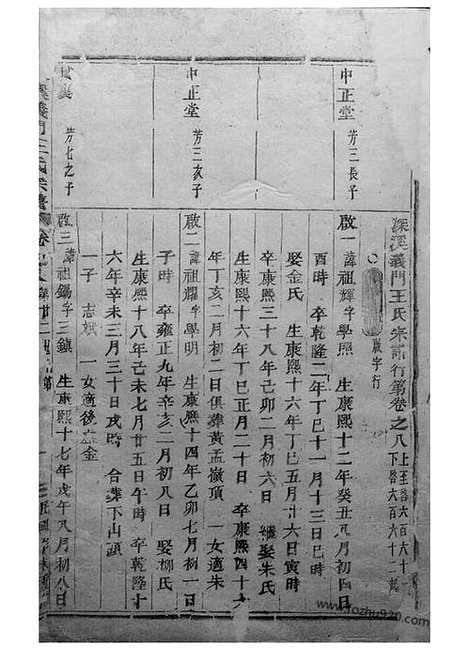 深溪義門王氏宗譜行第卷之八
啟字行
中正堂 芳三長子
啟一 諱祖輝字學照 生康熙十二年癸丑八月初四日
酉時 卒乾隆二年丁巳十一月十三日巳時
娶金氏 生康熙十六年丁巳五月廿六日寅時
卒康熙三十八年己卯二月初六日 繼娶朱氏
生康熙十六年丁巳正月二十日 卒康熙四十六
年丁亥二月初二日俱葬黃孟嶺頂 一女適朱
中正堂 芳三次子
啟二 諱祖耀字學明 生康熙十四年乙卯七月初一日
子時 卒雍正九年辛亥二月初八日 娶柳氏
生康熙十八年己未七月廿五日午時 卒乾隆十
六年辛未三月三十日戌時 合葬下山頭
一子 志斌 一女適後金
芳七之子
啟三 諱祖錫字三鎮 生康熙十七年戊午八月初八日
www.fozhu920.com